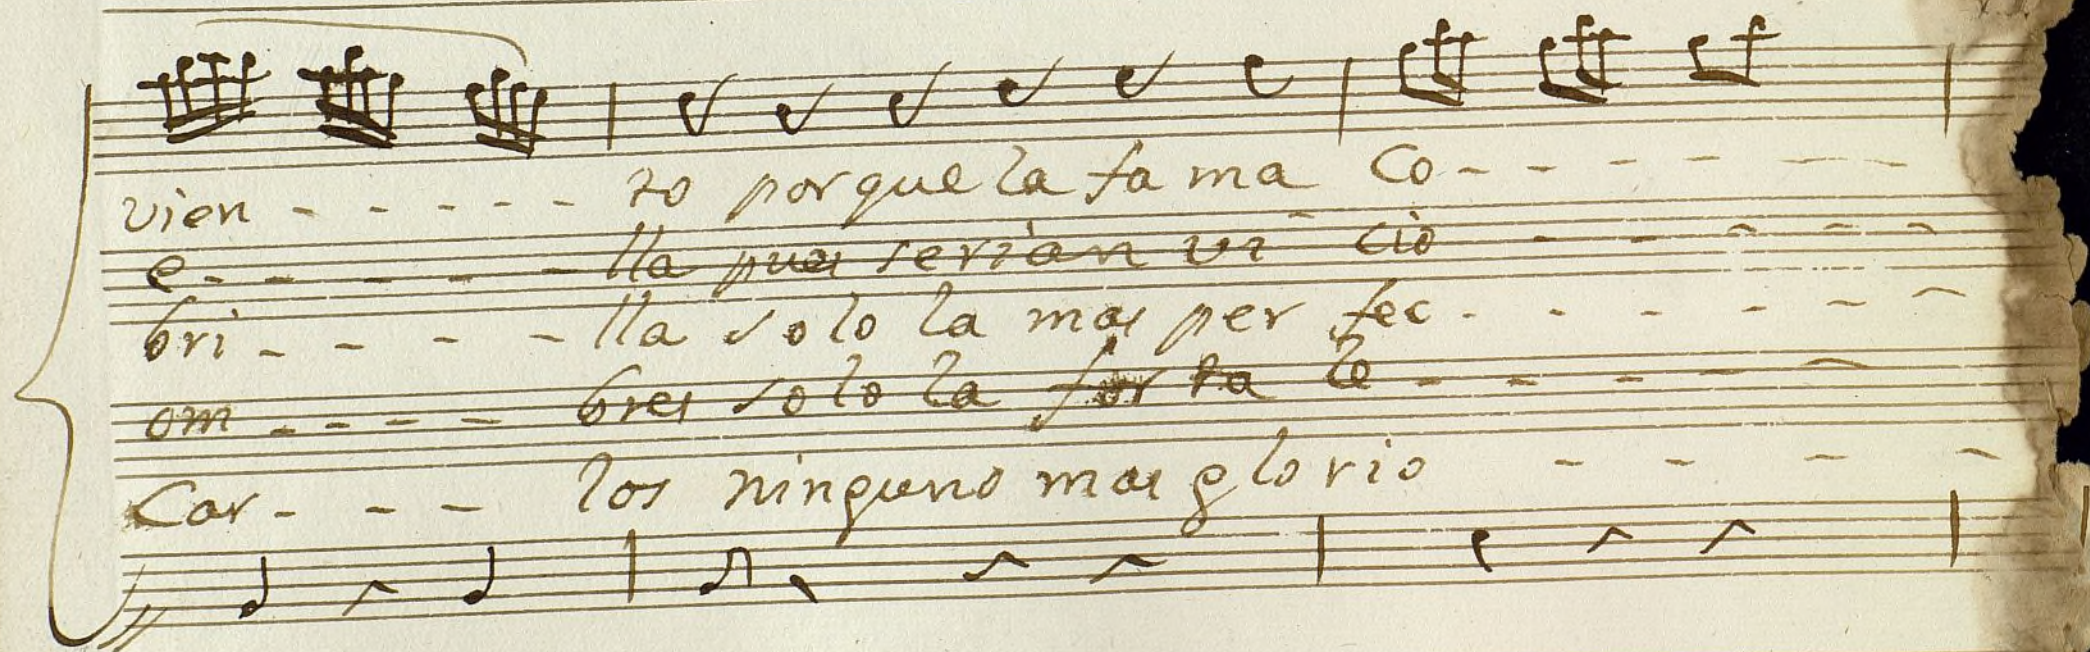 vien - - - - - to porque la fa ma Co - - - - - -
e - - - - - lla pues serian vi cio - - - - -
bri - - - - lla solo la mas per fec - - - - - -
om - - - - bres solo la for ta le - - - - -
Car - - - los ninguno mas glo rio - - - -